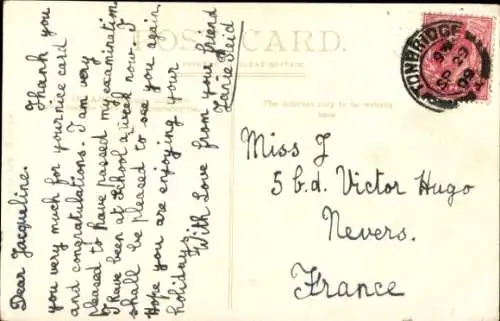 POST CARD.
Dear Jacqueline.
Thank you
you very much for your nice card
and congratulations. I am very
pleased to have passed my examination
I have been at School a week now. I
shall be pleased to see you again.
Hope you are enjoying your
holidays.
With Love from your friend
Janie Reid
The Address only to be written
here
TONBRIDGE
SP 29
Miss J
5 b.d. Victor Hugo
Nevers.
France